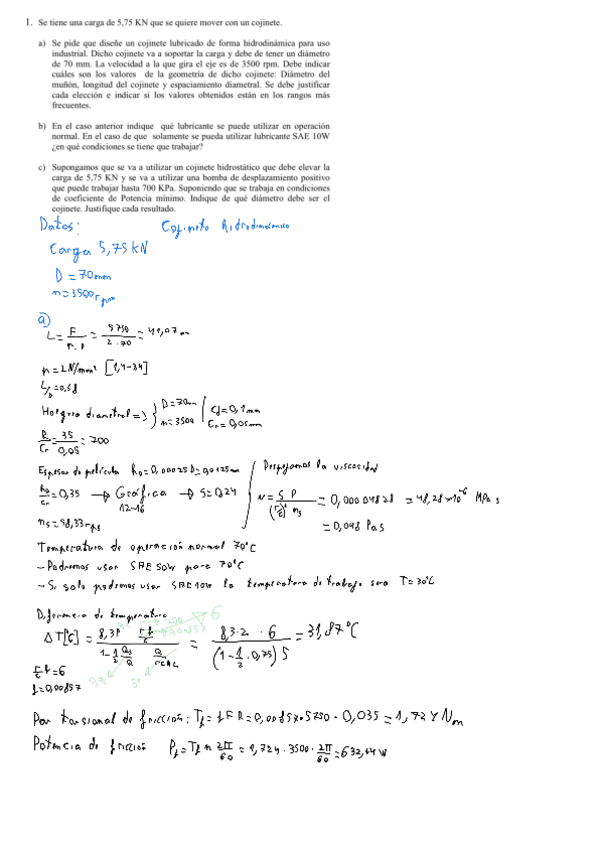 1. Se tiene una carga de 5,75 KN que se quiere mover con un cojinete.
a) Se pide que diseñe un cojinete lubricado de forma hidrodinámica para uso
industrial. Dicho cojinete va a soportar la carga y debe de tener un diámetro
de 70 mm. La velocidad a la que gira el eje es de 3500 rpm. Debe indicar
cuáles son los valores de la geometría de dicho cojinete: Diámetro del
muñón, longitud del cojinete y espaciamiento diametral. Se debe justificar
cada elección e indicar si los valores obtenidos están en los rangos más
frecuentes.
b) En el caso anterior indique qué lubricante se puede utilizar en operación
normal. En el caso de que solamente se pueda utilizar lubricante SAE 10W
¿en qué condiciones se tiene que trabajar?
c) Supongamos que se va a utilizar un cojinete hidrostático que debe elevar la
carga de 5,75 KN y se va a utilizar una bomba de desplazamiento positivo
que puede trabajar hasta 700 KPa. Suponiendo que se trabaja en condiciones
de coeficiente de Potencia mínimo. Indique de qué diámetro debe ser el
cojinete. Justifique cada resultado.
Datos: Cojinete Hidrodinámico
Carga 5,75 kN
D = 70mm
n = 3500 rpm
a)
L = F / P·D = 5750 / 2·70 = 41,07 m
p = 2N/mm² [1,4-3,4]
L/D = 0,58
Holgura diametral => D = 70mm n = 3500 Cd = 0,1mm Cr = 0,05mm
R/Cr = 35/0,05 = 700
Espesor de película h0 = 0,00025 D = 0,0175mm Despejamos la viscosidad
h0/cr = 0,35 → Gráfica 12-16 → S = 0,24 = 0,00004828 = 48,28·10⁻⁶ MPa s
ns = 58,33 rps = 0,048 Pa s
Temperatura de operación normal 70°C
- Podremos usar SAE 50W para 70°C
- Si solo podemos usar SAE 10W la temperatura de trabajo sera T = 30°C
Diferencia de temperatura
ΔT[°C] = = 8,3·2 · 6 / (1-½·0,75) 5 = 31,87°C
r/c f = 6
f = 0,00857
Par torsional de fricción: Tf = f F R = 0,00857·5750·0,035 = 1,724 Nm
Potencia de fricción Pf = Tf n 2π/60 = 1,724·3500·2π/60 = 632,44 W